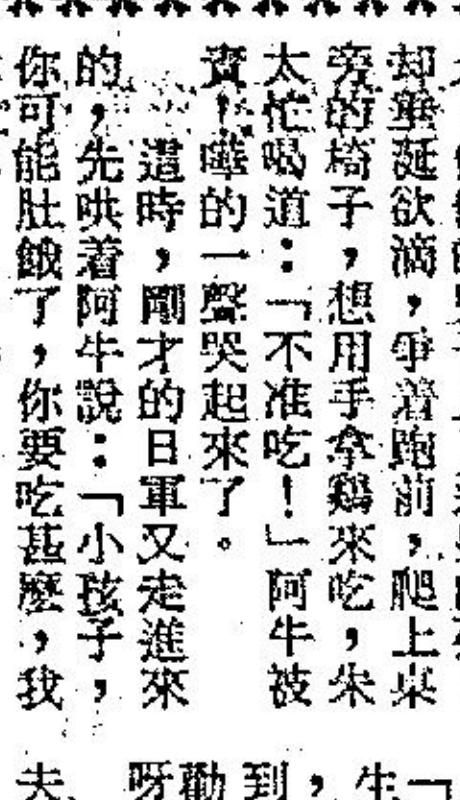 却垂涎欲滴，爭着跑前，爬上桌
旁的椅子，想用手拿鷄來吃，朱
太忙喝道：「不准吃！」阿牛被
責！嘩的一聲哭起來了。
這時，剛才的日軍又走進來
的，先哄着阿牛說：「小孩子，
你可能肚餓了，你要吃甚麼，我
「
生
，
到
勸
呀
夫